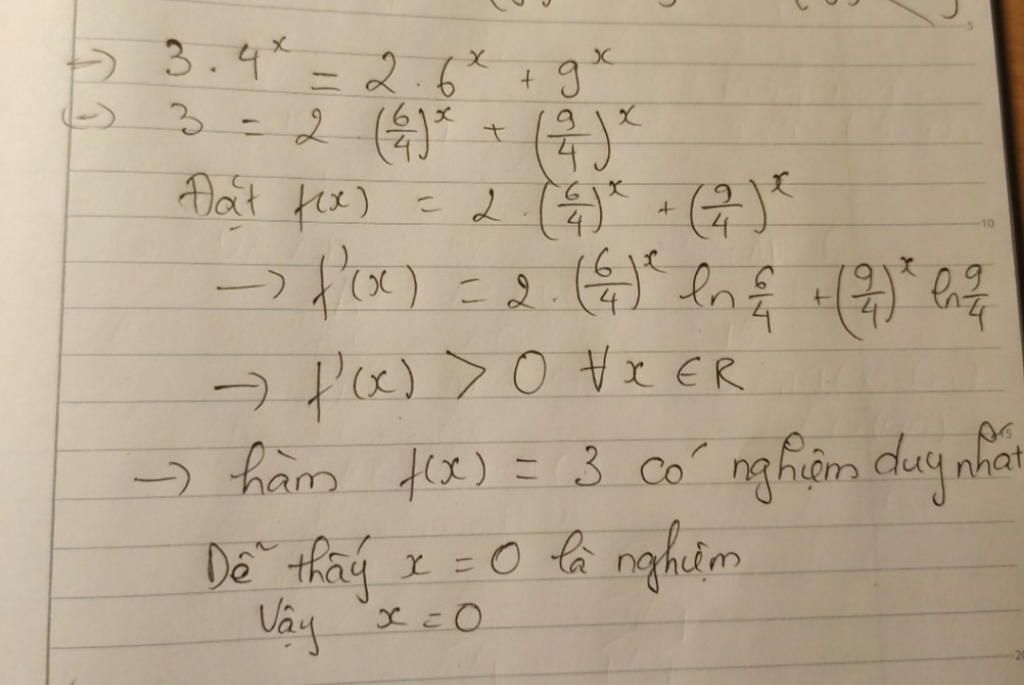 → 3 . 4^x = 2 . 6^x + 9^x
(→) 3 = 2 (6/4)^x + (9/4)^x
Đặt f(x) = 2 . (6/4)^x + (9/4)^x
→ f'(x) = 2 . (6/4)^x ln 6/4 + (9/4)^x ln 9/4
→ f'(x) > 0 ∀ x ∈ R
→ hàm f(x) = 3 có nghiệm duy nhất
Dễ thấy x = 0 là nghiệm
Vậy x = 0